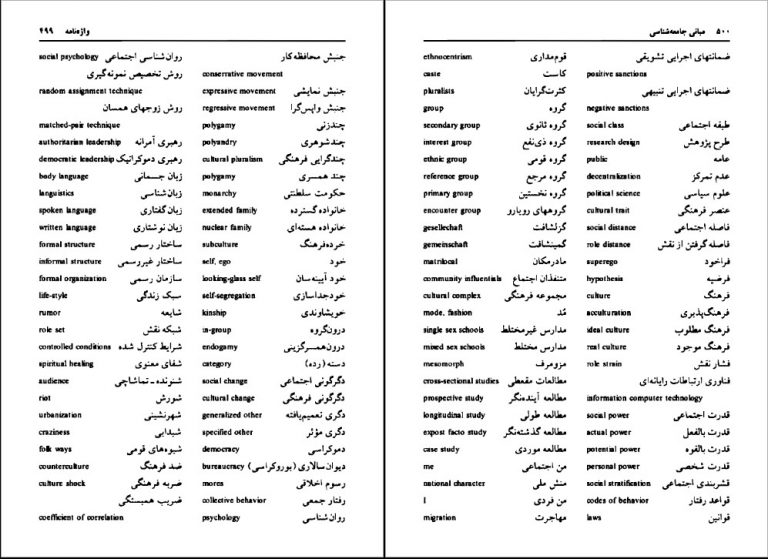 واژه‌نامه ۴۹۹
جنبش محافظه‌کار
conserrative movement
جنبش نمایشی expressive movement
جنبش واپس‌گرا regressive movement
چندزنی polygamy
چندشوهری polyandry
چندگرایی فرهنگی cultural pluralism
چند همسری polygamy
حکومت سلطنتی monarchy
خانواده گسترده extended family
خانواده هسته‌ای nuclear family
خرده‌فرهنگ subculture
خود self, ego
خود آیینه‌سان looking-glass self
خودجداسازی self-segregation
خویشاوندی kinship
درون‌گروه in-group
درون‌همسرگزینی endogamy
دسته (رده) category
دگرگونی اجتماعی social change
دگرگونی فرهنگی cultural change
دگری تعمیم‌یافته generalized other
دگری مؤثر specified other
دموکراسی democracy
دیوان‌سالاری (بوروکراسی) bureaucracy
رسوم اخلاقی mores
رفتار جمعی collective behavior
روان‌شناسی psychology
روان‌شناسی اجتماعی social psychology
روش تخصیص نمونه‌گیری
random assignment technique
روش زوجهای همسان
matched-pair technique
رهبری آمرانه authoritarian leadership
رهبری دموکراتیک democratic leadership
زبان جسمانی body language
زبان‌شناسی languistics
زبان گفتاری spoken language
زبان نوشتاری written language
ساختار رسمی formal structure
ساختار غیررسمی informal structure
سازمان رسمی formal organization
سبک زندگی life-style
شایعه rumor
شبکه نقش role set
شرایط کنترل شده controlled conditions
شفای معنوی spiritual healing
شنونده ـ تماشاچی audience
شورش riot
شهرنشینی urbanization
شیدایی craziness
شیوه‌های قومی folk ways
ضد فرهنگ counterculture
ضربه فرهنگی culture shock
ضریب همبستگی
coefficient of correlation
۵۰۰ مبانی جامعه‌شناسی
ضمانتهای اجرایی تشویقی
positive sanctions
ضمانتهای اجرایی تنبیهی
negative sanctions
طبقه اجتماعی social class
طرح پژوهش research design
عامه public
عدم تمرکز decentralization
علوم سیاسی political science
عنصر فرهنگی cultural trait
فاصله اجتماعی social distance
فاصله گرفتن از نقش role distance
فراخود superego
فرضیه hypothesis
فرهنگ culture
فرهنگ‌پذیری acculturation
فرهنگ مطلوب ideal culture
فرهنگ موجود real culture
فشار نقش role strain
فناوری ارتباطات رایانه‌ای
information computer technology
قدرت اجتماعی social power
قدرت بالفعل actual power
قدرت بالقوه potential power
قدرت شخصی personal power
قشربندی اجتماعی social stratification
قواعد رفتار codes of behavior
قوانین laws
قوم‌مداری ethnocentrism
کاست caste
کثرت‌گرایان pluralists
گروه group
گروه ثانوی secondary group
گروه ذی‌نفع interest group
گروه قومی ethnic group
گروه مرجع reference group
گروه نخستین primary group
گروههای رویارو encounter group
گزلشافت gesellechaft
گمینشافت gemeinschaft
مادرمکان matrilocal
متنفذان اجتماع community influentials
مجموعه فرهنگی cultural complex
مُد mode, fashion
مدارس غیرمختلط single sex schools
مدارس مختلط mixed sex schools
مزومرف mesomorph
مطالعات مقطعی cross-sectional studies
مطالعه آینده‌نگر prospective study
مطالعه طولی longitudinal study
مطالعه گذشته‌نگر expost facto study
مطالعه موردی case study
من اجتماعی me
منش ملی national character
من فردی I
مهاجرت migration